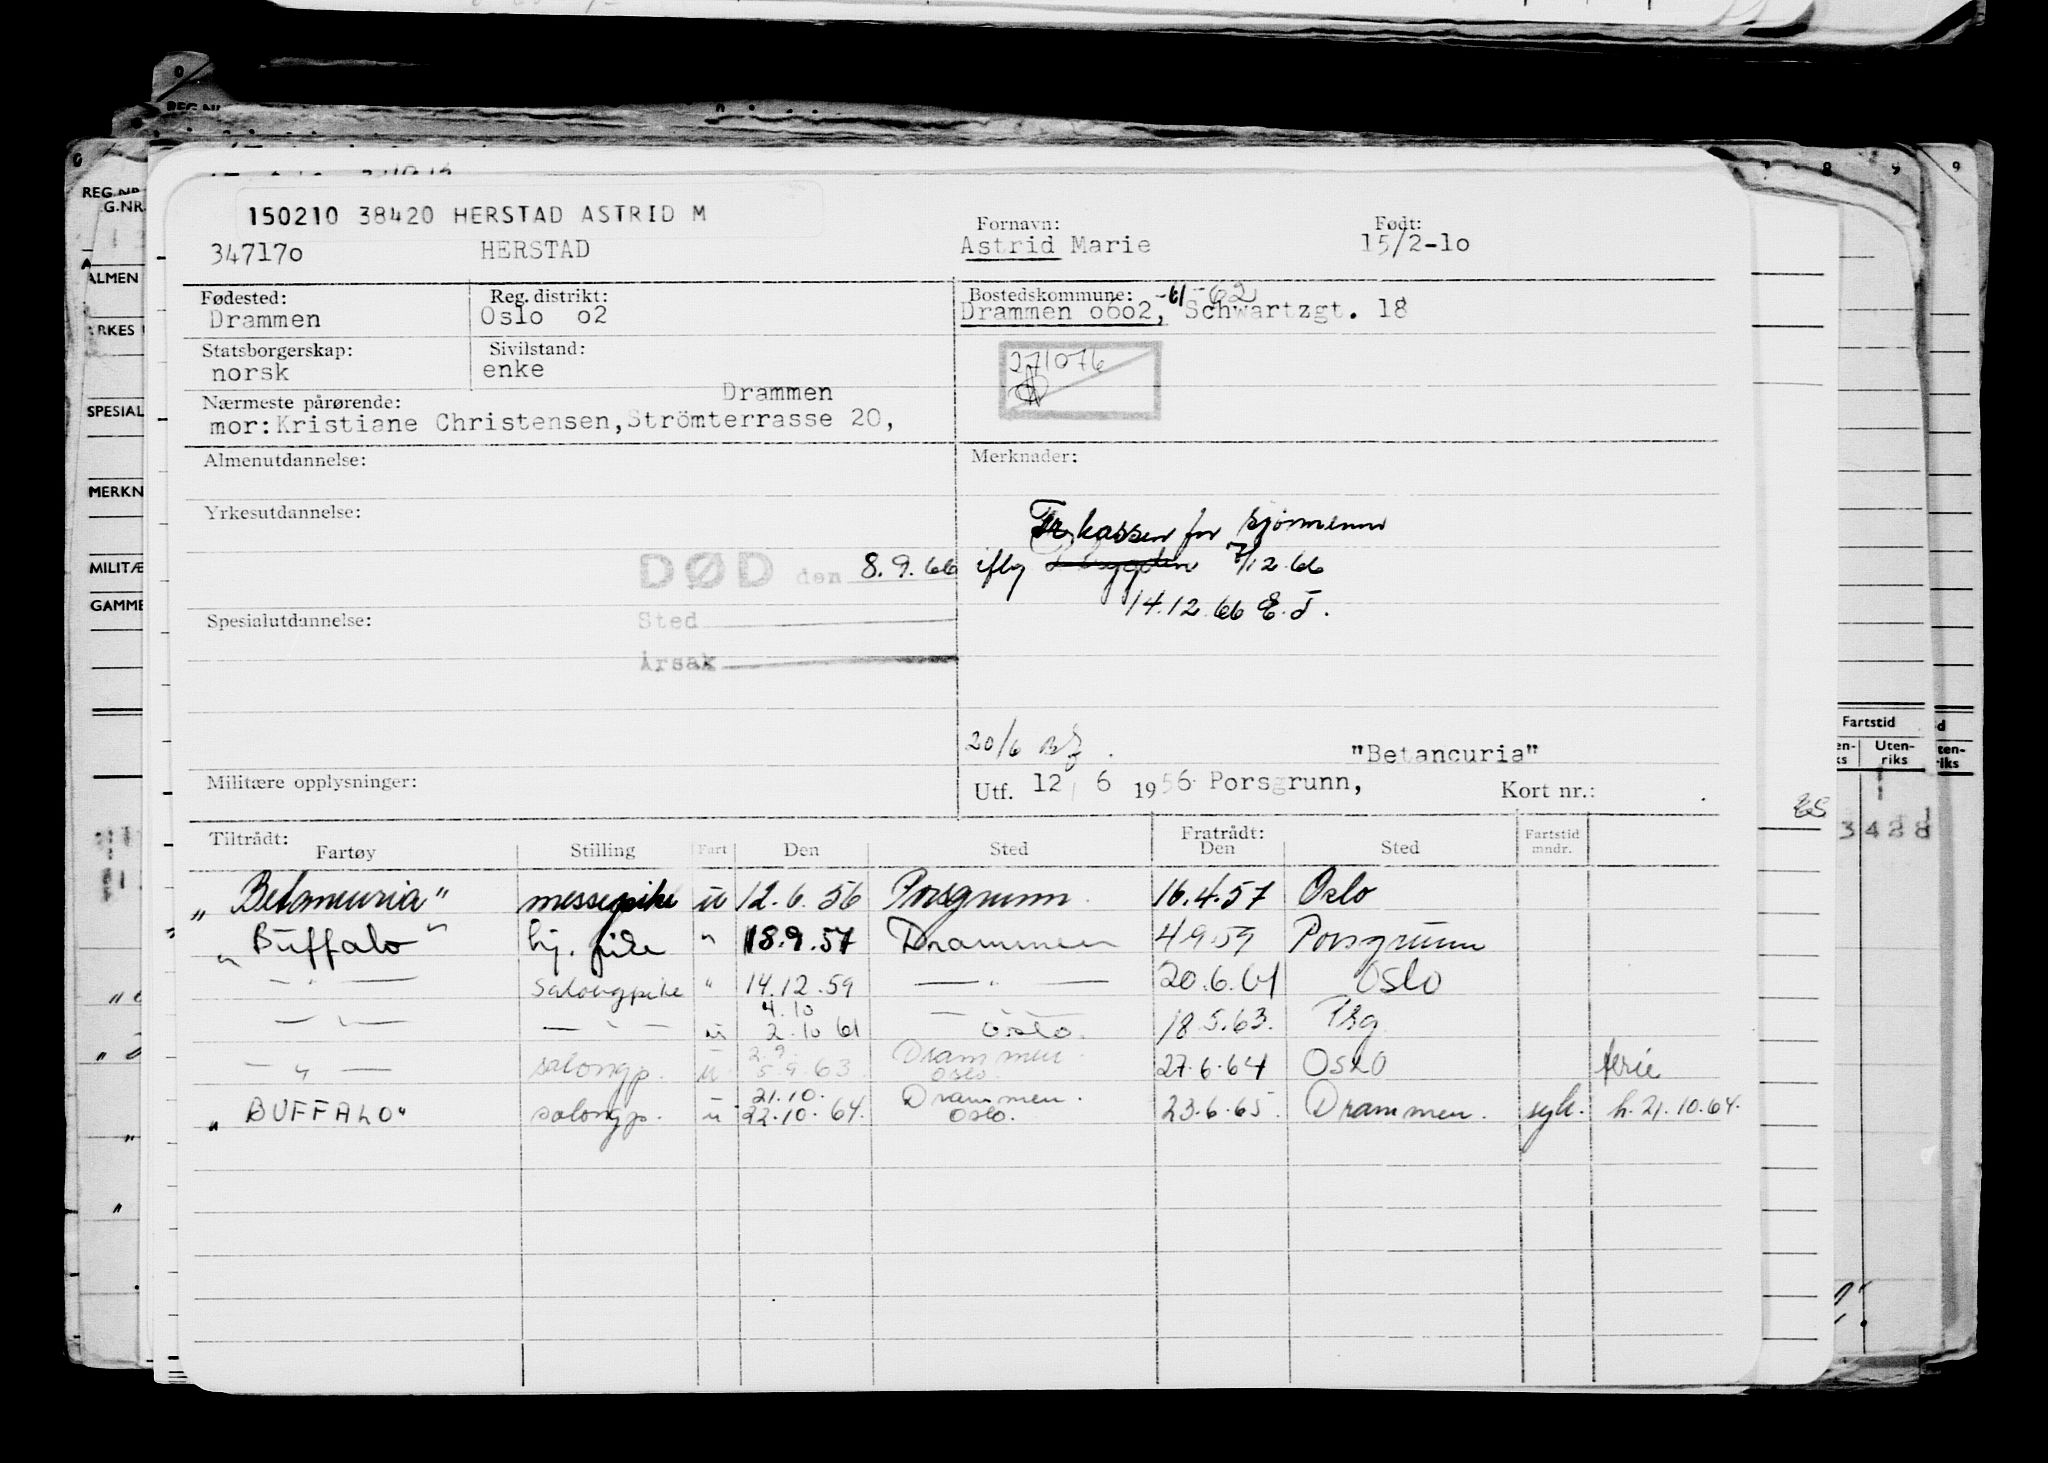 REG.NR.
G.NR.
ALMEN
RKES
SPESIAL
MERKN
MILITÆ
GAMME
8 9 9
150210 38420 HERSTAD ASTRID M
Fornavn: Født:
347170 HERSTAD Astrid Marie 15/2-10
Fødested: Reg. distrikt: Bostedskommune: -61-62
Drammen Oslo o2 Drammen o6o2, Schwartzgt. 18
Statsborgerskap: Sivilstand:
norsk enke
271076
Nærmeste pårørende: Drammen
mor: Kristiane Christensen, Strömterrasse 20,
Almenutdannelse: Merknader:
Yrkesutdannelse:
Tr kassen for sjømenn
DØD den 8.9.66 iflg 7/12.66
14.12.66 E.T.
Spesialutdannelse: Sted
Årsak
20/6
"Betancuria"
Militære opplysninger: Utf. 12/ 6 1956 Porsgrunn, Kort nr.:
Fartstid
Uten-
riks
3 428
Tiltrådt: Fratrådt:
Fartøy Stilling Fart Den Sted Den Sted Fartstid mndr.
"Betancuria" messepike u 12.6.56 Porsgrunn 16.4.57 Oslo
"Buffalo" bij. pike " 18.9.57 Drammen 4.9.59 Porsgrunn
— " — salongpike " 14.12.59 — " — 20.6.61 Oslo
4.10
— " — — " — u 2.10 61 Oslo. 18.5.63. Prg
2.9 Drammen.
— " — salongp. u 5.9.63 Oslo. 27.6.64 Oslo ferie
21.10. Drammen.
"BUFFALO" salongp. u 22.10.64. Oslo. 23.6.65. Drammen. syk. h. 21.10.64.